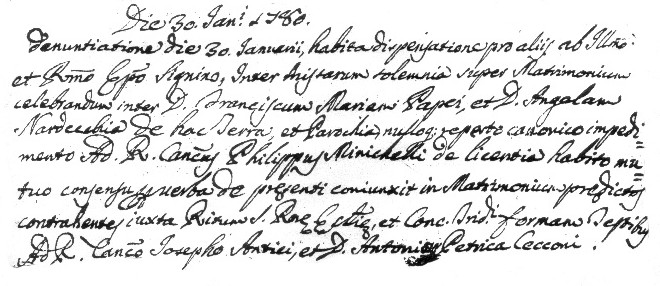 Die 30. Jan: 1780.
denuntiatione die 30. Januarii, habita dispensatione pro aliis ab Illmo:
et Rmo Eppo Signino, Inter Missarum solemnia super Matrimonium
celebrandum inter D. Franciscum Mariam Papei, et D. Angelam
Nardecchia de hac Terra, et Parochia, nulloq: reperto canonico impedi=
mento Ad. R. Cancus Philippus Minichelli de licentia habito mu=
tuo consensu verba de presenti coniunxit in Matrimonium predictos
contrahentes iuxta Ritum S. Rae Ecclie, et Conc. Trid: formam Testibus
Ad R. Canco Josepho Antici, et D. Antonio Petrica Cecconi.